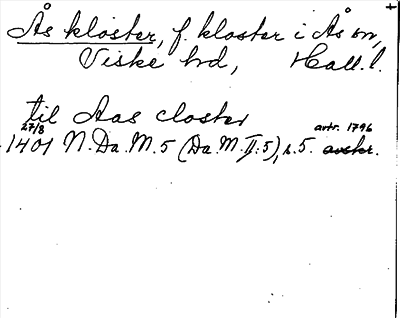 Ås kloster, f. kloster i Ås sn,
Viske hd, Hall. l.
til Aas closter
27/8 avtr. 1796
1401 N.Da.M.5 (Da.M.II:5), s.5. avskr.